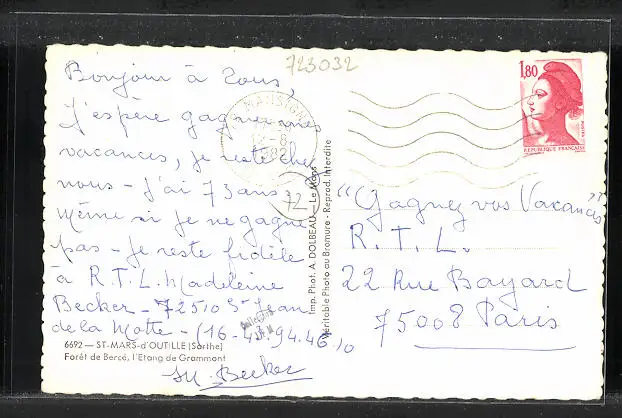 723032
Bonjour à Tous,
J'espère gagner mes
vacances, je reste chez
nous - J'ai 73 ans,
Même si je ne gagne
pas - Je reste fidèle
à R.T.L. Madeleine
Becker - 72510 St Jean
de la Motte - (16-43.94.46.10
M. Becker
6692 — ST-MARS-d'OUTILLE (Sarthe)
Forêt de Bercé, l'Etang de Grammont
MANSIGNÉ
72
Imp. Phot. A. DOLBEAU — Le Mans
Véritable Photo au Bromure - Reprod. Interdite
1,80
REPUBLIQUE FRANÇAISE
"Gagnez vos Vacances"
R.T.L.
22 Rue Bayard
75008 Paris